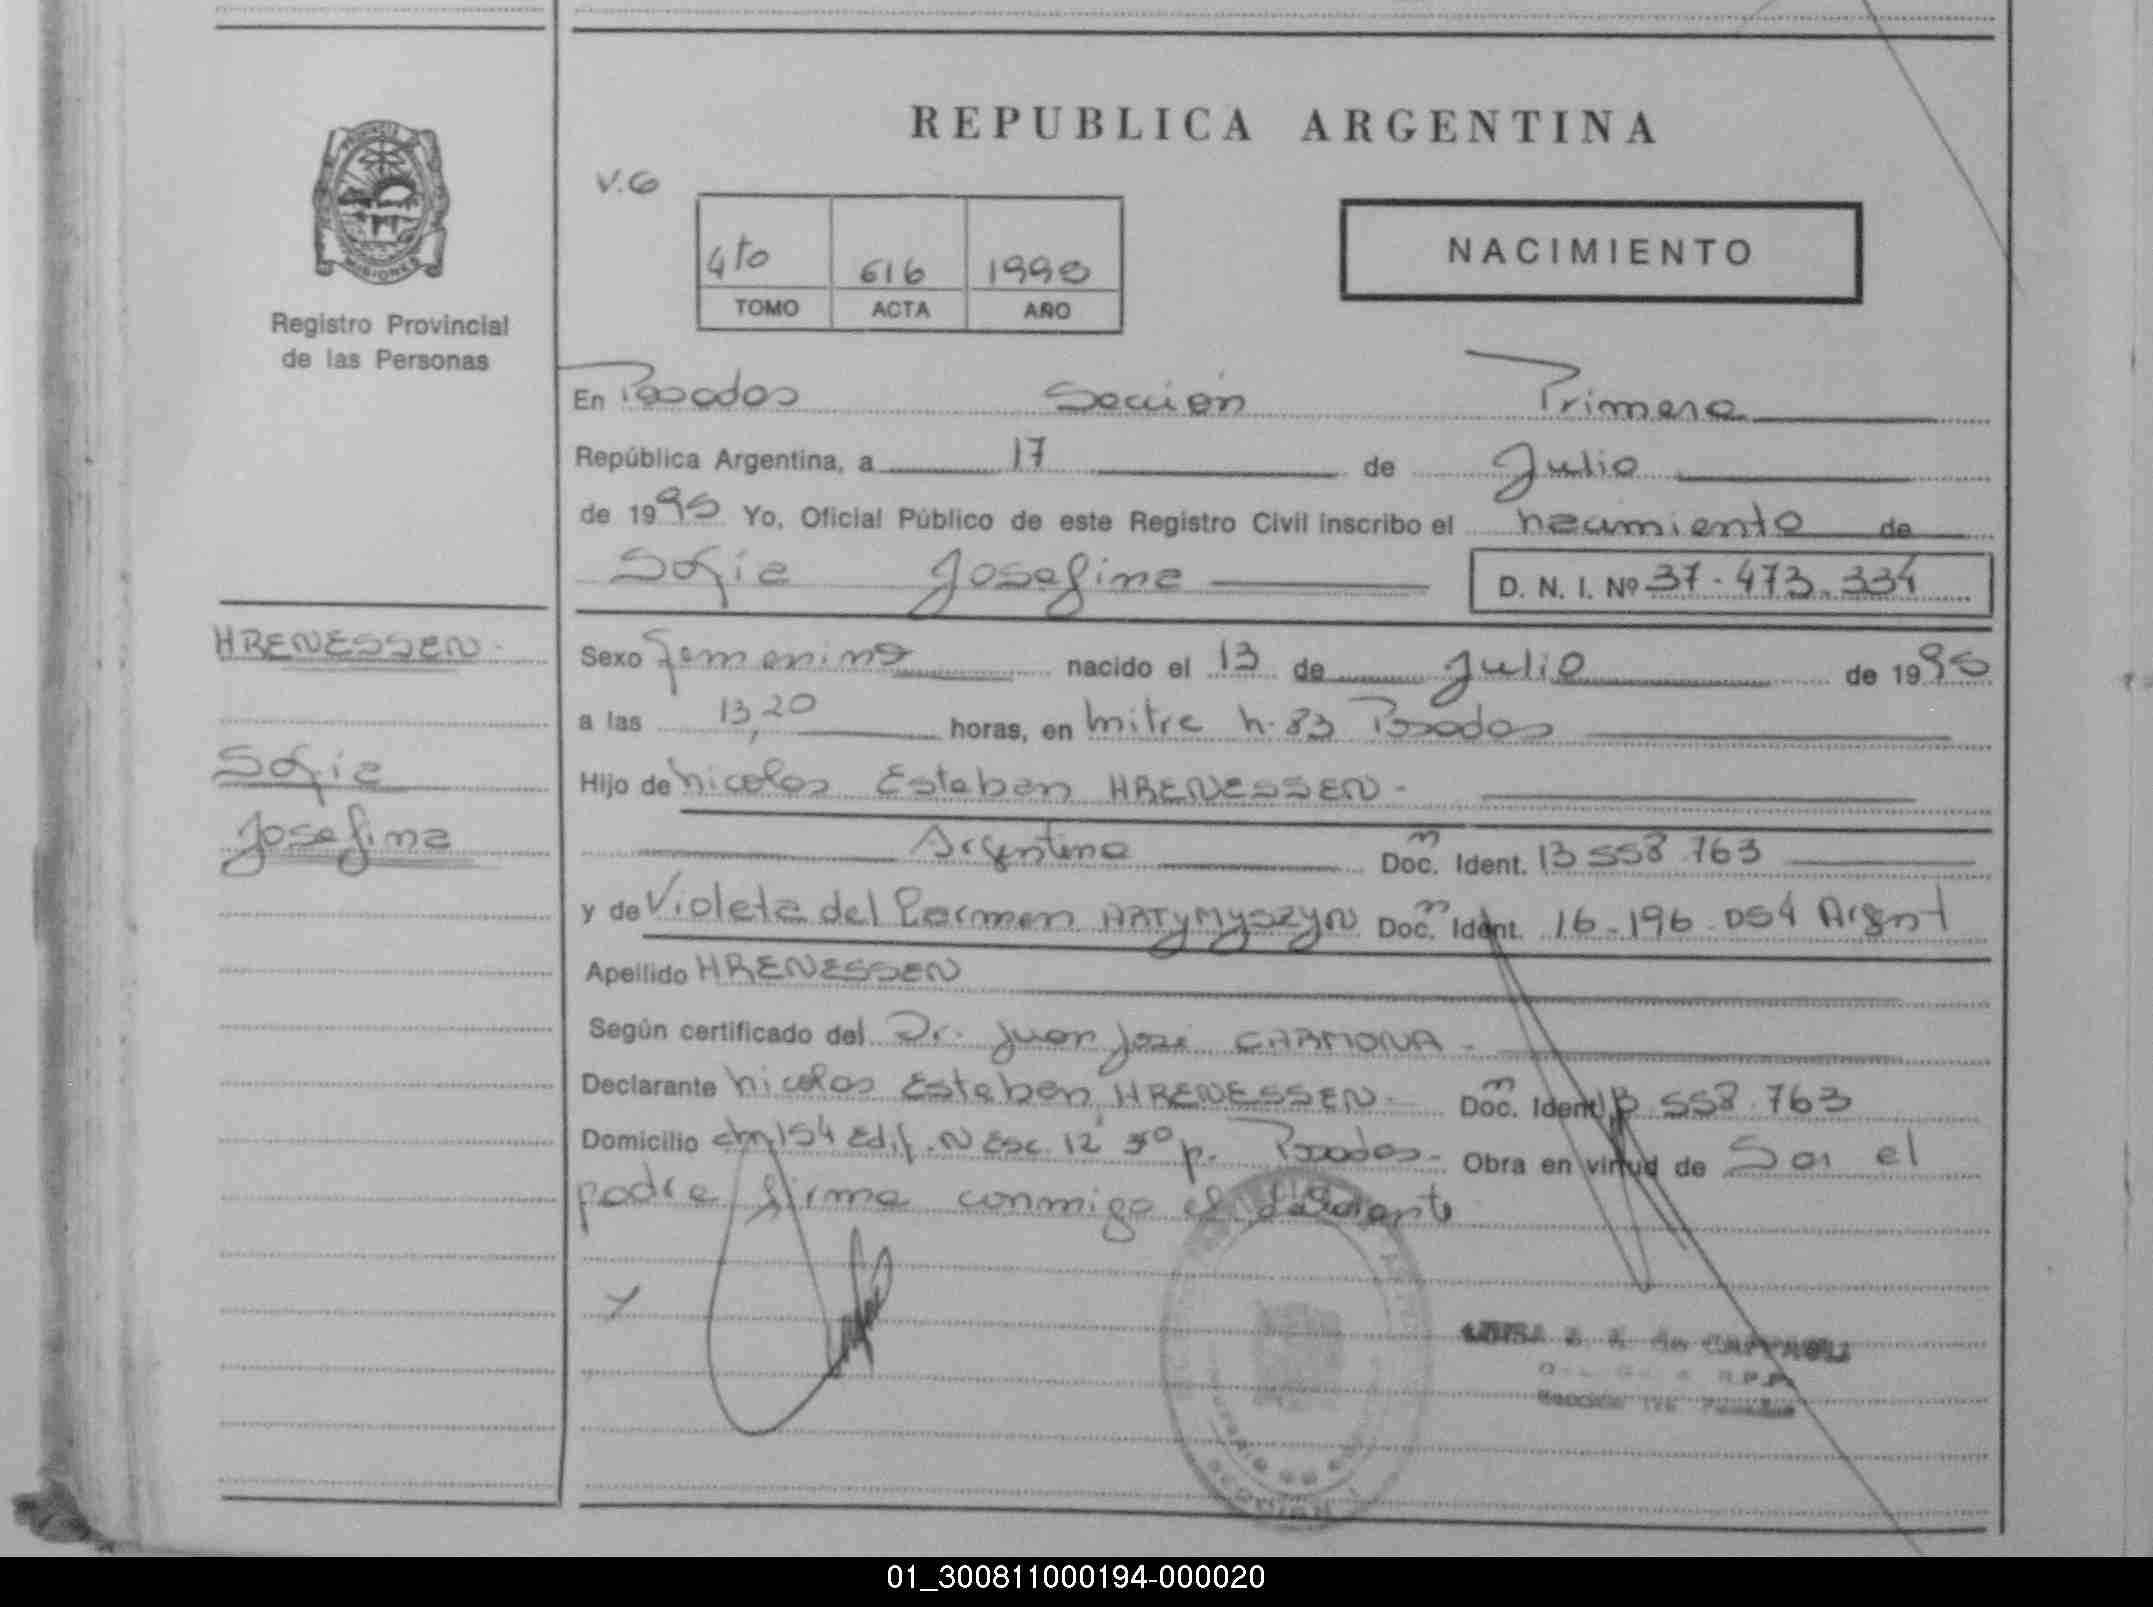 REPUBLICA ARGENTINA
V.G
4to 616 1990
TOMO ACTA AÑO
NACIMIENTO
MISIONES
Registro Provincial
de las Personas
En Posadas Sección Primera
República Argentina, a 17 de Julio
de 1990 Yo, Oficial Público de este Registro Civil inscribo el nacimiento de
Sofia Josefina D. N. I. Nº 37.473.334
HRENESSEN
Sofia
Josefina
Sexo Femenino nacido el 13 de Julio de 1990
a las 13,20 horas, en Mitre n. 83 Posadas
Hijo de Nicolas Esteban HRENESSEN -
Argentino Doc. Ident. 13 558 763
y de Violeta del Carmen HRTYMYSZYN Doc. Ident. 16-196-054 Argent
Apellido HRENESSEN
Según certificado del Dr. Juan José CARMONA -
Declarante Nicolas Esteban HRENESSEN - Doc. Ident. 13 558 763
Domicilio chn 154 Edif. N Esc. 12 3º p. Posadas - Obra en virtud de Ser el
padre firma conmigo el declarante
de CAPPAULI
R.P.P.
Sección 1ra Posadas
01_300811000194-000020